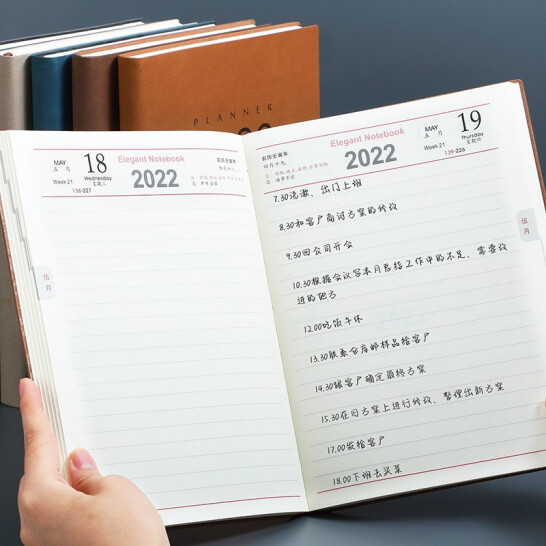 PLANNER
MAY
五 月
Week 21
138-227
18
Wednesday
星期三
Elegant Notebook
2022
农历壬寅年
四月十八
伍月
农历壬寅年
四月十九
Elegant Notebook
2022
MAY
五 月
Week 21
139-226
19
Thursday
星期四
伍月
7.30洗漱、出门上班
8.30和客户商讨方案的修改
9.30回公司开会
10.30根据会议写本月总结工作中的不足、需要改
进的地方
12.00吃饭午休
13.30联系仓库邮样品给客户
14.30跟客户确定最终方案
15.30在旧方案上进行修改、整理出新方案
17.00发给客户
18.00下班去买菜